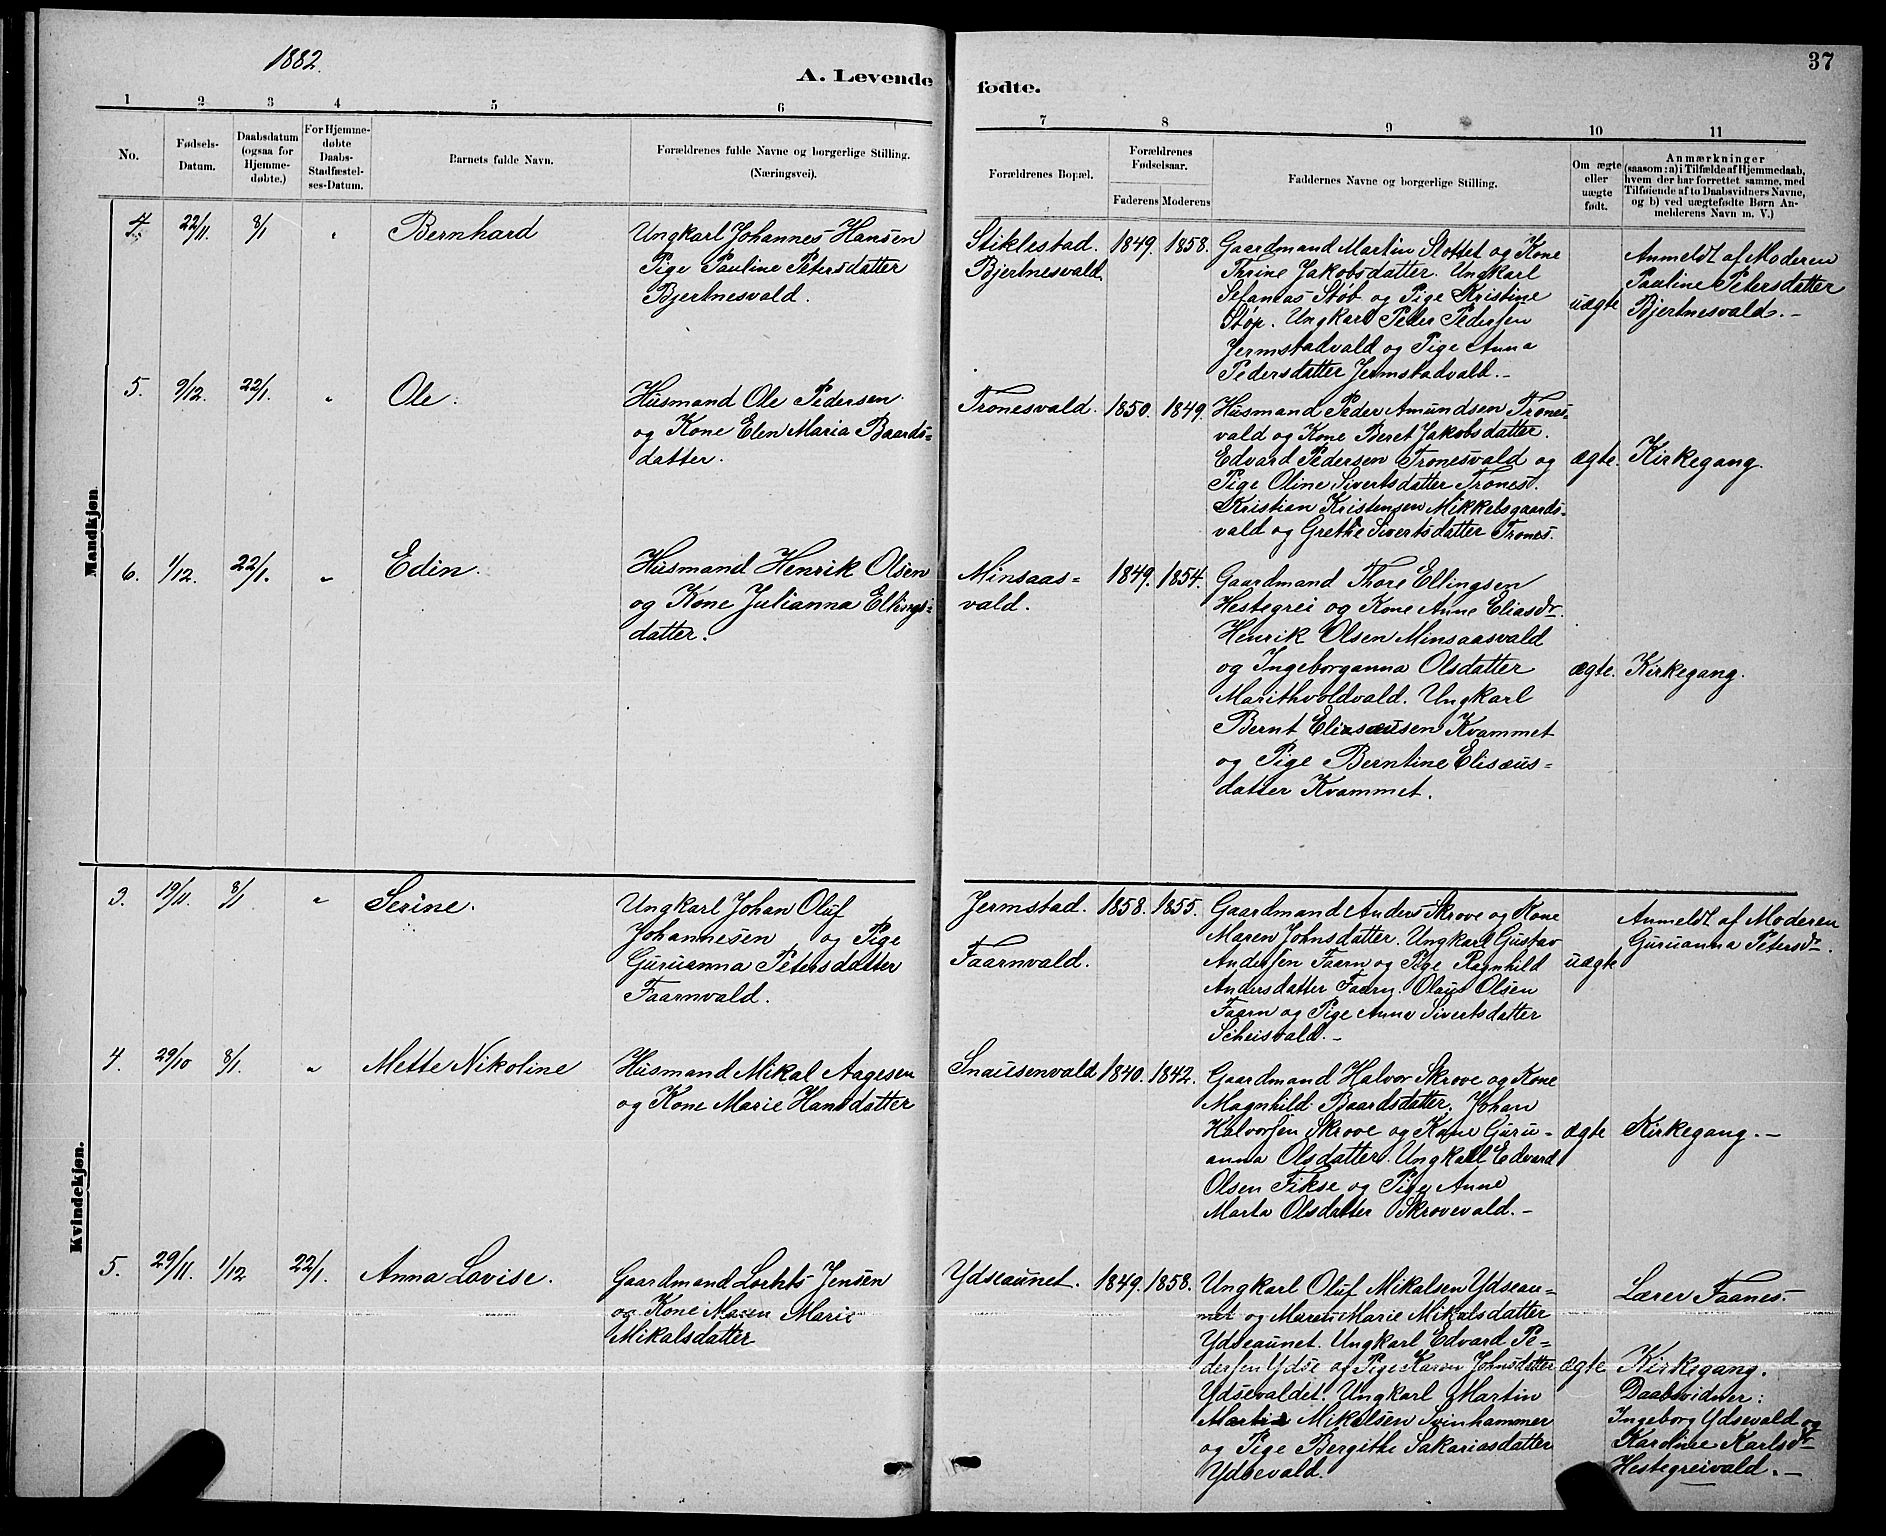 1882.
37
A. Levende fødte.
1 2 3 4 5 6 7 8 9 10 11
No.
Fødsels-
Datum.
Daabsdatum
(ogsaa for
Hjemme-
døbte.)
For Hjemme-
døbte
Daabs-
Stadfæstel-
ses-Datum.
Barnets fulde Navn.
Forældrenes fulde Navne og borgerlige Stilling.
(Næringsvei).
Forældrenes Bopæl.
Forældrenes
Fødselsaar.
Faderens Moderens
Faddernes Navne og borgerlige Stilling.
Om ægte
eller
uægte
født.
Anmærkninger
(saasom: a) i Tilfælde af Hjemmedaab,
hvem der har forrettet samme, med
Tilføiende af to Daabsvidners Navne,
og b) ved uægtefødte Børn An-
melderens Navn m. V.)
Mandkjøn
4. 22/11. 8/1 " Bernhard
Ungkarl Johannes Hansen
Pige Pauline Petersdatter
Bjertnesvald.
Stiklestad.
Bjertnesvald.
1849. 1858.
Gaardmand Martin Slottet og Kone
Thrine Jakobsdatter. Ungkarl
Sefanias Støb og Pige Kristine
Støp. Ungkarl Peder Pedersen
Jermstadvald og Pige Anna
Pedersdatter Jermstadvald.-
uægte
Anmeldt af Moderen
Pauline Petersdatter
Bjertnesvald.-
5. 9/12. 22/1. " Ole.
Husmand Ole Pedersen
og Kone Elen Maria Baards=
datter.
Tronesvald. 1850. 1849.
Husmand Peder Amundsen Trones-
vald og Kone Beret Jakobsdatter.
Edvard Pedersen Tronesvald og
Pige Oline Sivertsdatter Trones.
Kristian Kristensen Mikkelsgaards-
vald og Grethe Sivertsdatter Trones.
ægte. Kirkegang.
6. 1/12. 22/1. " Edin.
Husmand Henrik Olsen
og Kone Julianna Ellings-
datter.
Minsaas=
vald.
1849. 1854.
Gaardmand Thore Ellingsen
Hestegrei og Kone Anne Eliasdr.
Henrik Olsen Minsaasvald
og Ingeborganna Olsdatter
Marithvoldvald. Ungkarl
Bernt Elisæusen Kvammet
og Pige Berntine Elisæus=
datter Kvammet.
ægte. Kirkegang.
Kvindekjøn.
3. 19/11. 8/1. " Serine.
Ungkarl Johan Oluf
Johannesen og Pige
Guruanna Petersdatter
Faarnvald.
Jermstad.
Faarnvald.
1858. 1855.
Gaardmand Anders Skrove og Kone
Maren Johnsdatter. Ungkarl Gustav
Andersen Faarn og Pige Ragnhild
Andersdatter Faarn. Olaus Olsen
Faarn og Pige Anne Sivertsdatter
uægte
Anmeldt af Moderen
Guruanna Petersdr.
4. 29/10 8/1. " Mette Nikoline
Husmand Mikal Aagesen
og Kone Marie Hansdatter
Snausenvald 1840. 1842.
Gaardmand Halvor Skrove og Kone
Magnhild Baardsdatter. Johan
Halvorsen Skrove og Kone Guru-
anna Olsdatter. Ungkarl Edvard
Olsen Fikse og Pige Anne
Marta Olsdatter Skrovevald.-
ægte Kirkegang.-
5. 29/11. 1/12 22/1. Anna Lovise.
Gaardmand Jensen
og Kone Maren Marie
Mikalsdatter
Ydseaunet. 1849. 1858.
Ungkarl Oluf Mikalsen Ydseau-
net og Maren Marie Mikalsdatter
Ydseaunet. Ungkarl Edvard Pe-
dersen Ydse og Pige Karen Johnsdatter
Ydsevaldet. Ungkarl Martin
Mikalsen Svinhammer
og Pige Bergithe Sakariasdatter
Ydsevald.
ægte
Lærer Faanes.
Kirkegang.
Daabsvidner:
Ingeborg Ydsevald og
Karoline Karlsdr.
Hestegreivald.-